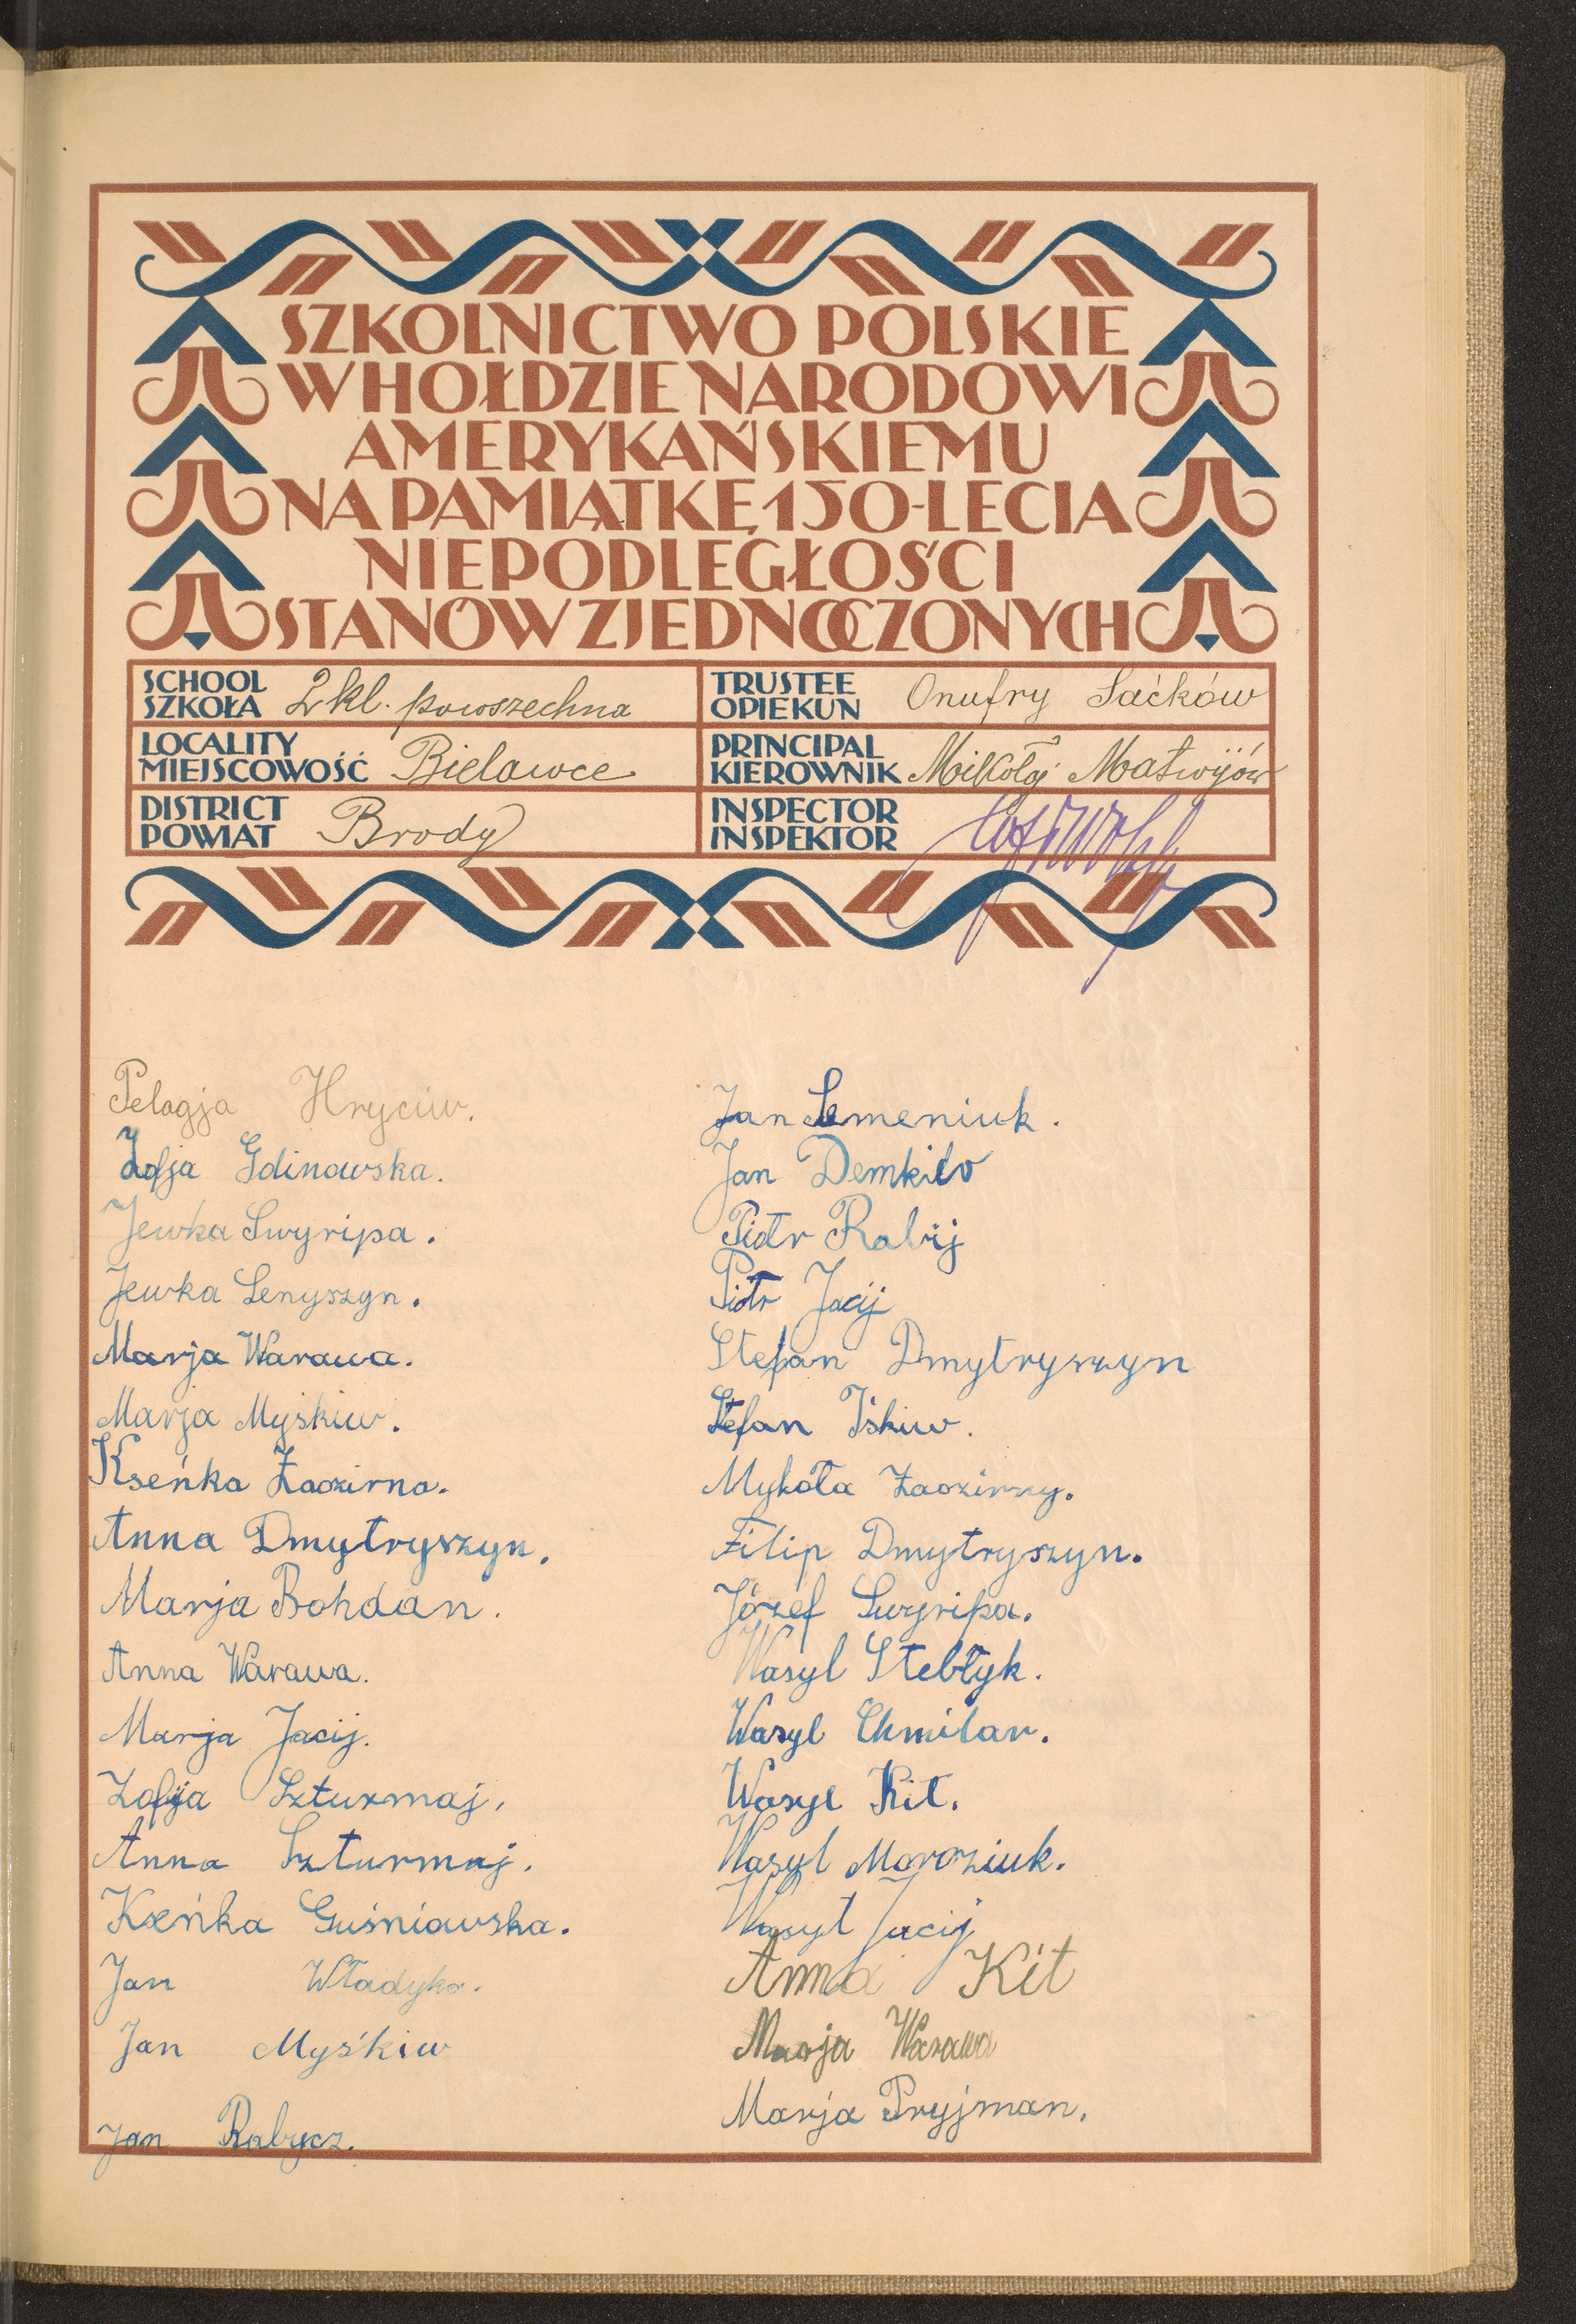 SZKOLNICTWO POLSKIE
W HOŁDZIE NARODOWI
AMERYKAŃSKIEMU
NA PAMIĄTKĘ 150-LECIA
NIEPODLEGŁOŚCI
STANÓW ZJEDNOCZONYCH
SCHOOL
SZKOŁA 2 kl. powszechna
TRUSTEE
OPIEKUN Onufry Saćków
LOCALITY
MIEJSCOWOŚĆ Bielawce
PRINCIPAL
KIEROWNIK Mikołaj Matwijów
DISTRICT
POWIAT Brody
INSPECTOR
INSPEKTOR
Pelagja Hryciw.
Zofja Gdinowska.
Jewka Swyripa.
Jewka Senyszyn.
Marja Warawa.
Marja Myśkiw.
Kseńka Zaozirna.
Anna Dmytryszyn.
Marja Bohdan.
Anna Warawa.
Marja Jacij.
Zofja Szturmaj.
Anna Szturmaj.
Kseńka Guśniowska.
Jan Władyka.
Jan Myśkiw
Jan Rabycz.
Jan Semeniuk.
Jan Demkiw
Piotr Rabij
Piotr Jacij
Stefan Dmytryszyn
Stefan Iśkiw.
Mykoła Zaozirny.
Filip Dmytryszyn.
Józef Swyripa.
Wasyl Stebłyk.
Wasyl Chmilar.
Wasyl Kit.
Wasyl Moroziuk.
Wasyl Jacij
Anna Kit
Marja Warawa
Marja Pryjman.